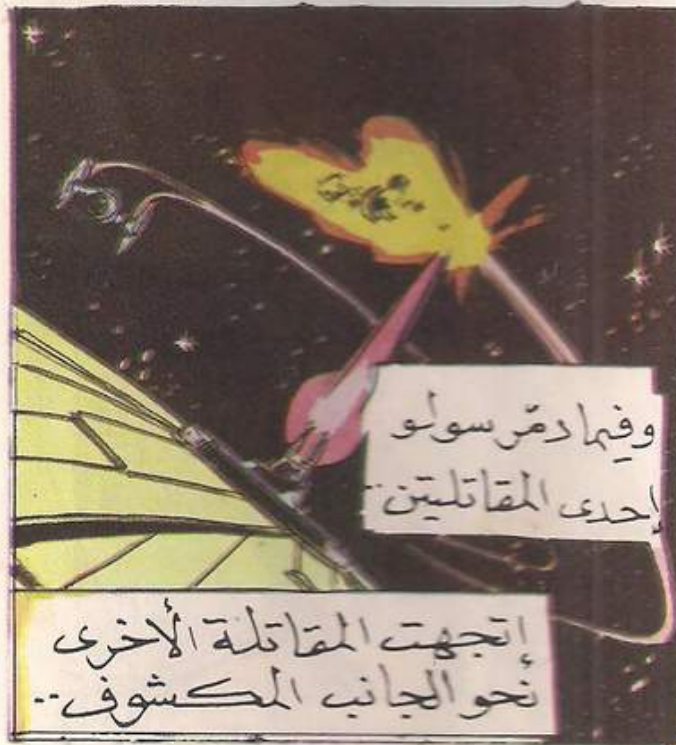 وفيما دمّر سولو
إحدى المقاتلتين..
إتجهت المقاتلة الأخرى
نحو الجانب المكشوف..